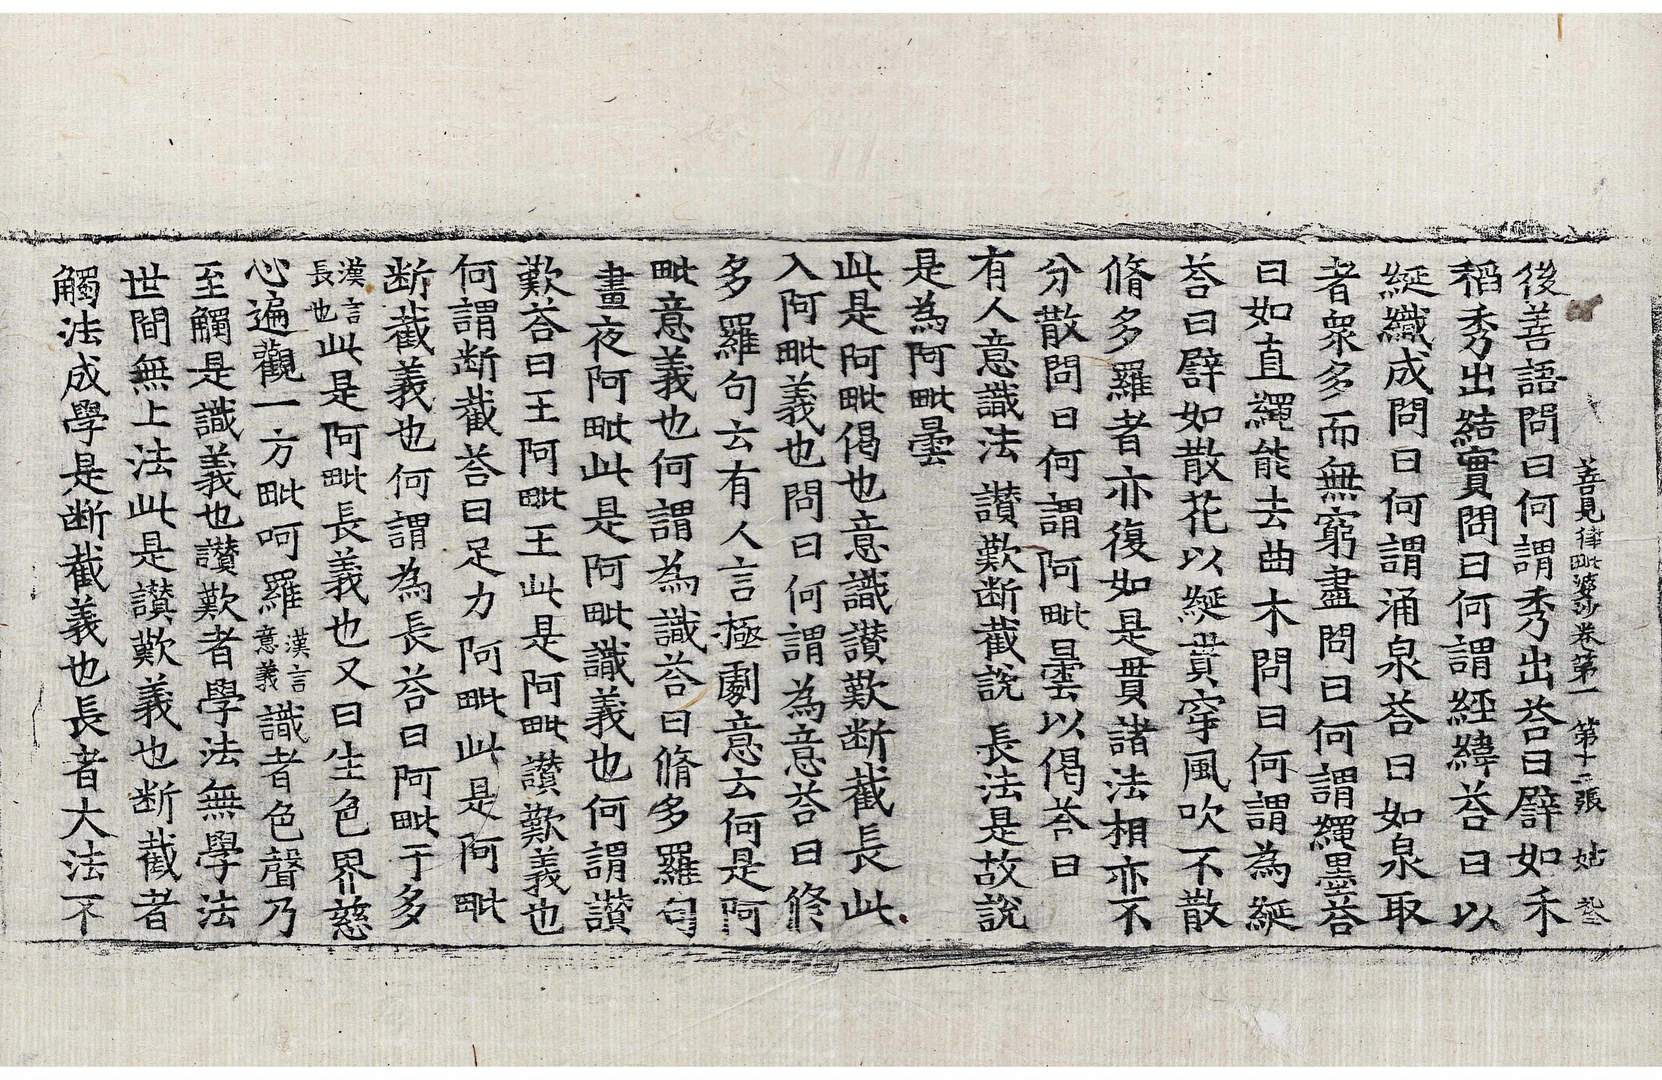 善見律毗婆沙卷第一 第十二張 姑
後善語問曰何謂秀出荅曰譬如禾
稻秀出結實問曰何謂經緯荅曰以
綖織成問曰何謂涌泉荅曰如泉取
者衆多而無窮盡問曰何謂繩墨荅
曰如直繩能去曲木問曰何謂為綖
荅曰譬如散花以綖貫穿風吹不散
脩多羅者亦復如是貫諸法相亦不
分散問曰何謂阿毗曇以偈荅曰
有人意識法 讃歎断截說 長法是故說
是為阿毗曇
此是阿毗偈也意識讃歎断截長此
入阿毗義也問曰何謂為意荅曰脩
多羅句云有人言極劇意云何是阿
毗意義也何謂為識荅曰脩多羅句
晝夜阿毗此是阿毗識義也何謂讃
歎荅曰王阿毗王此是阿毗讃歎義也
何謂断截荅曰足力阿毗此是阿毗
断截義也何謂為長荅曰阿毗于多
漢言長也此是阿毗長義也又曰生色界慈
心遍觀一方毗呵羅漢言意義識者色聲乃
至觸是識義也讃歎者學法無學法
世間無上法此是讃歎義也断截者
觸法成學是断截義也長者大法不